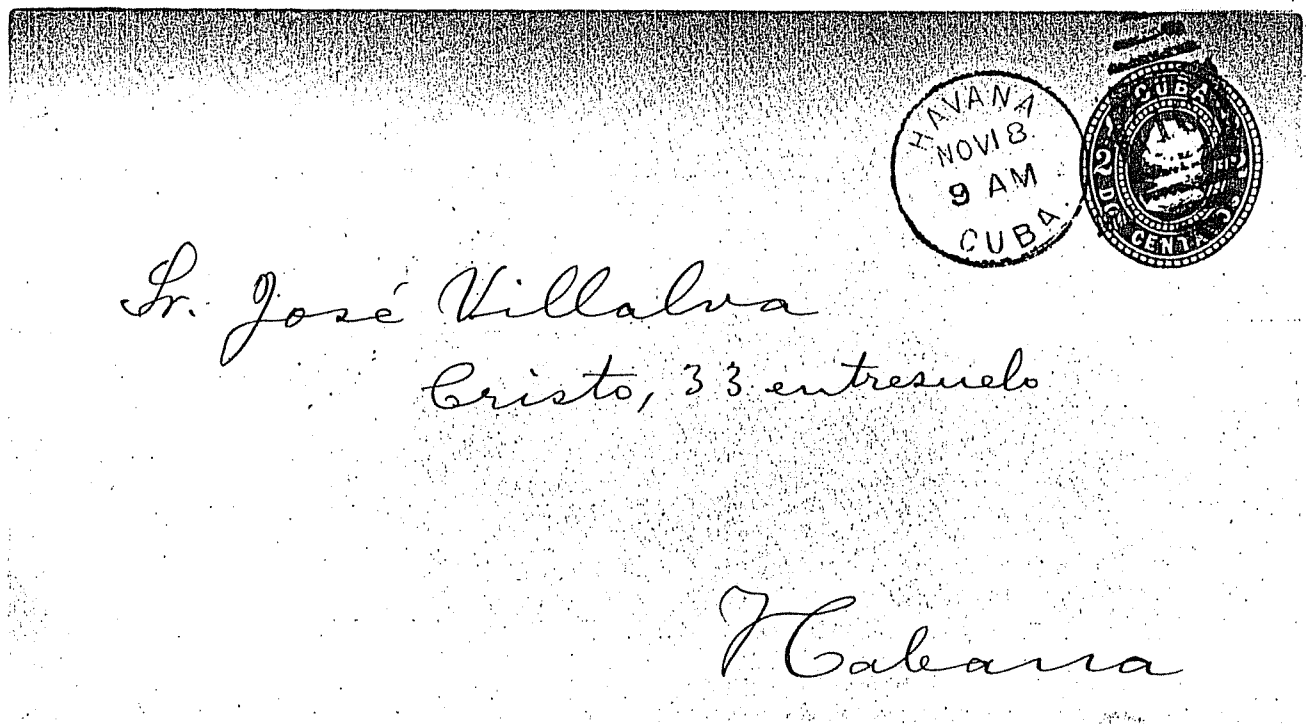 HAVANA
NOV 18
9 AM
CUBA.
CUBA
2 2
CENTA
Sr. José Villalva
Cristo, 33 entresuelo
Habana